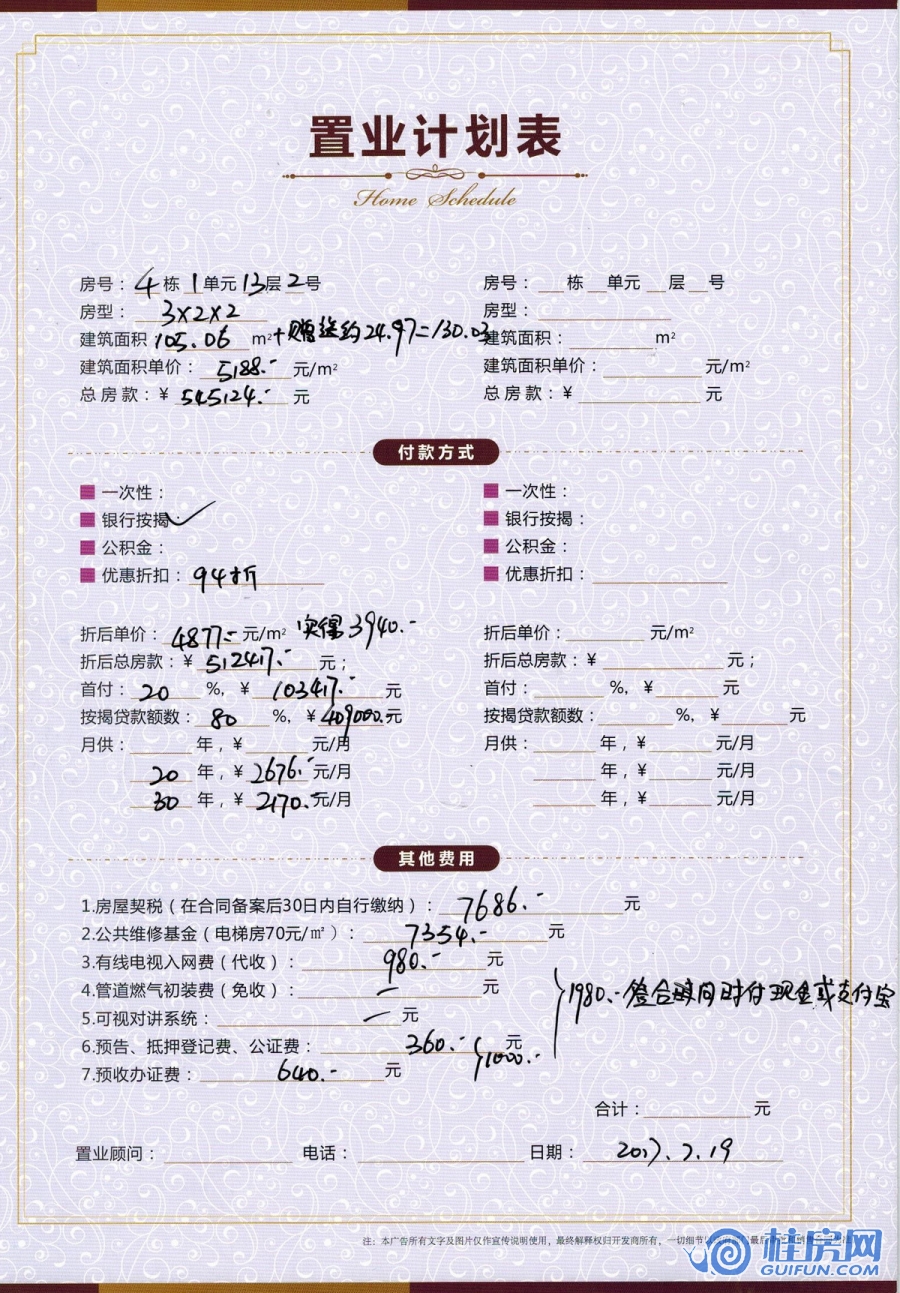 置业计划表
Home Schedule
房号：4栋1单元13层2号
房型：3×2×2
建筑面积105.06m²+赠送约24.97=130.03
建筑面积单价：5188.-元/m²
总房款：￥545124.-元
房号：栋单元层号
房型：
建筑面积：m²
建筑面积单价：元/m²
总房款：￥元
付款方式
一次性：
银行按揭：✓
公积金：
优惠折扣：94折
一次性：
银行按揭：
公积金：
优惠折扣：
折后单价：4877.-元/m² 实得3940.-
折后总房款：￥512417.-元；
首付：20%，￥103417.-元
按揭贷款额数：80%，￥409000.-元
月供：年，￥元/月
20年，￥2676.-元/月
30年，￥2170.-元/月
折后单价：元/m²
折后总房款：￥元；
首付：%，￥元
按揭贷款额数：%，￥元
月供：年，￥元/月
年，￥元/月
年，￥元/月
其他费用
1.房屋契税（在合同备案后30日内自行缴纳）：7686.-元
2.公共维修基金（电梯房70元/㎡）：7354.-元
3.有线电视入网费（代收）：980.-元
4.管道燃气初装费（免收）：－元
5.可视对讲系统：－元
6.预告、抵押登记费、公证费：360.-元
7.预收办证费：640.-元
}1000.-
}1980.-签合同时付现金或支付宝
合计：元
置业顾问：电话：日期：2017.7.19
注：本广告所有文字及图片仅作宣传说明使用，最终解释权归开发商所有，一切细节
桂房网
GUIFUN.COM